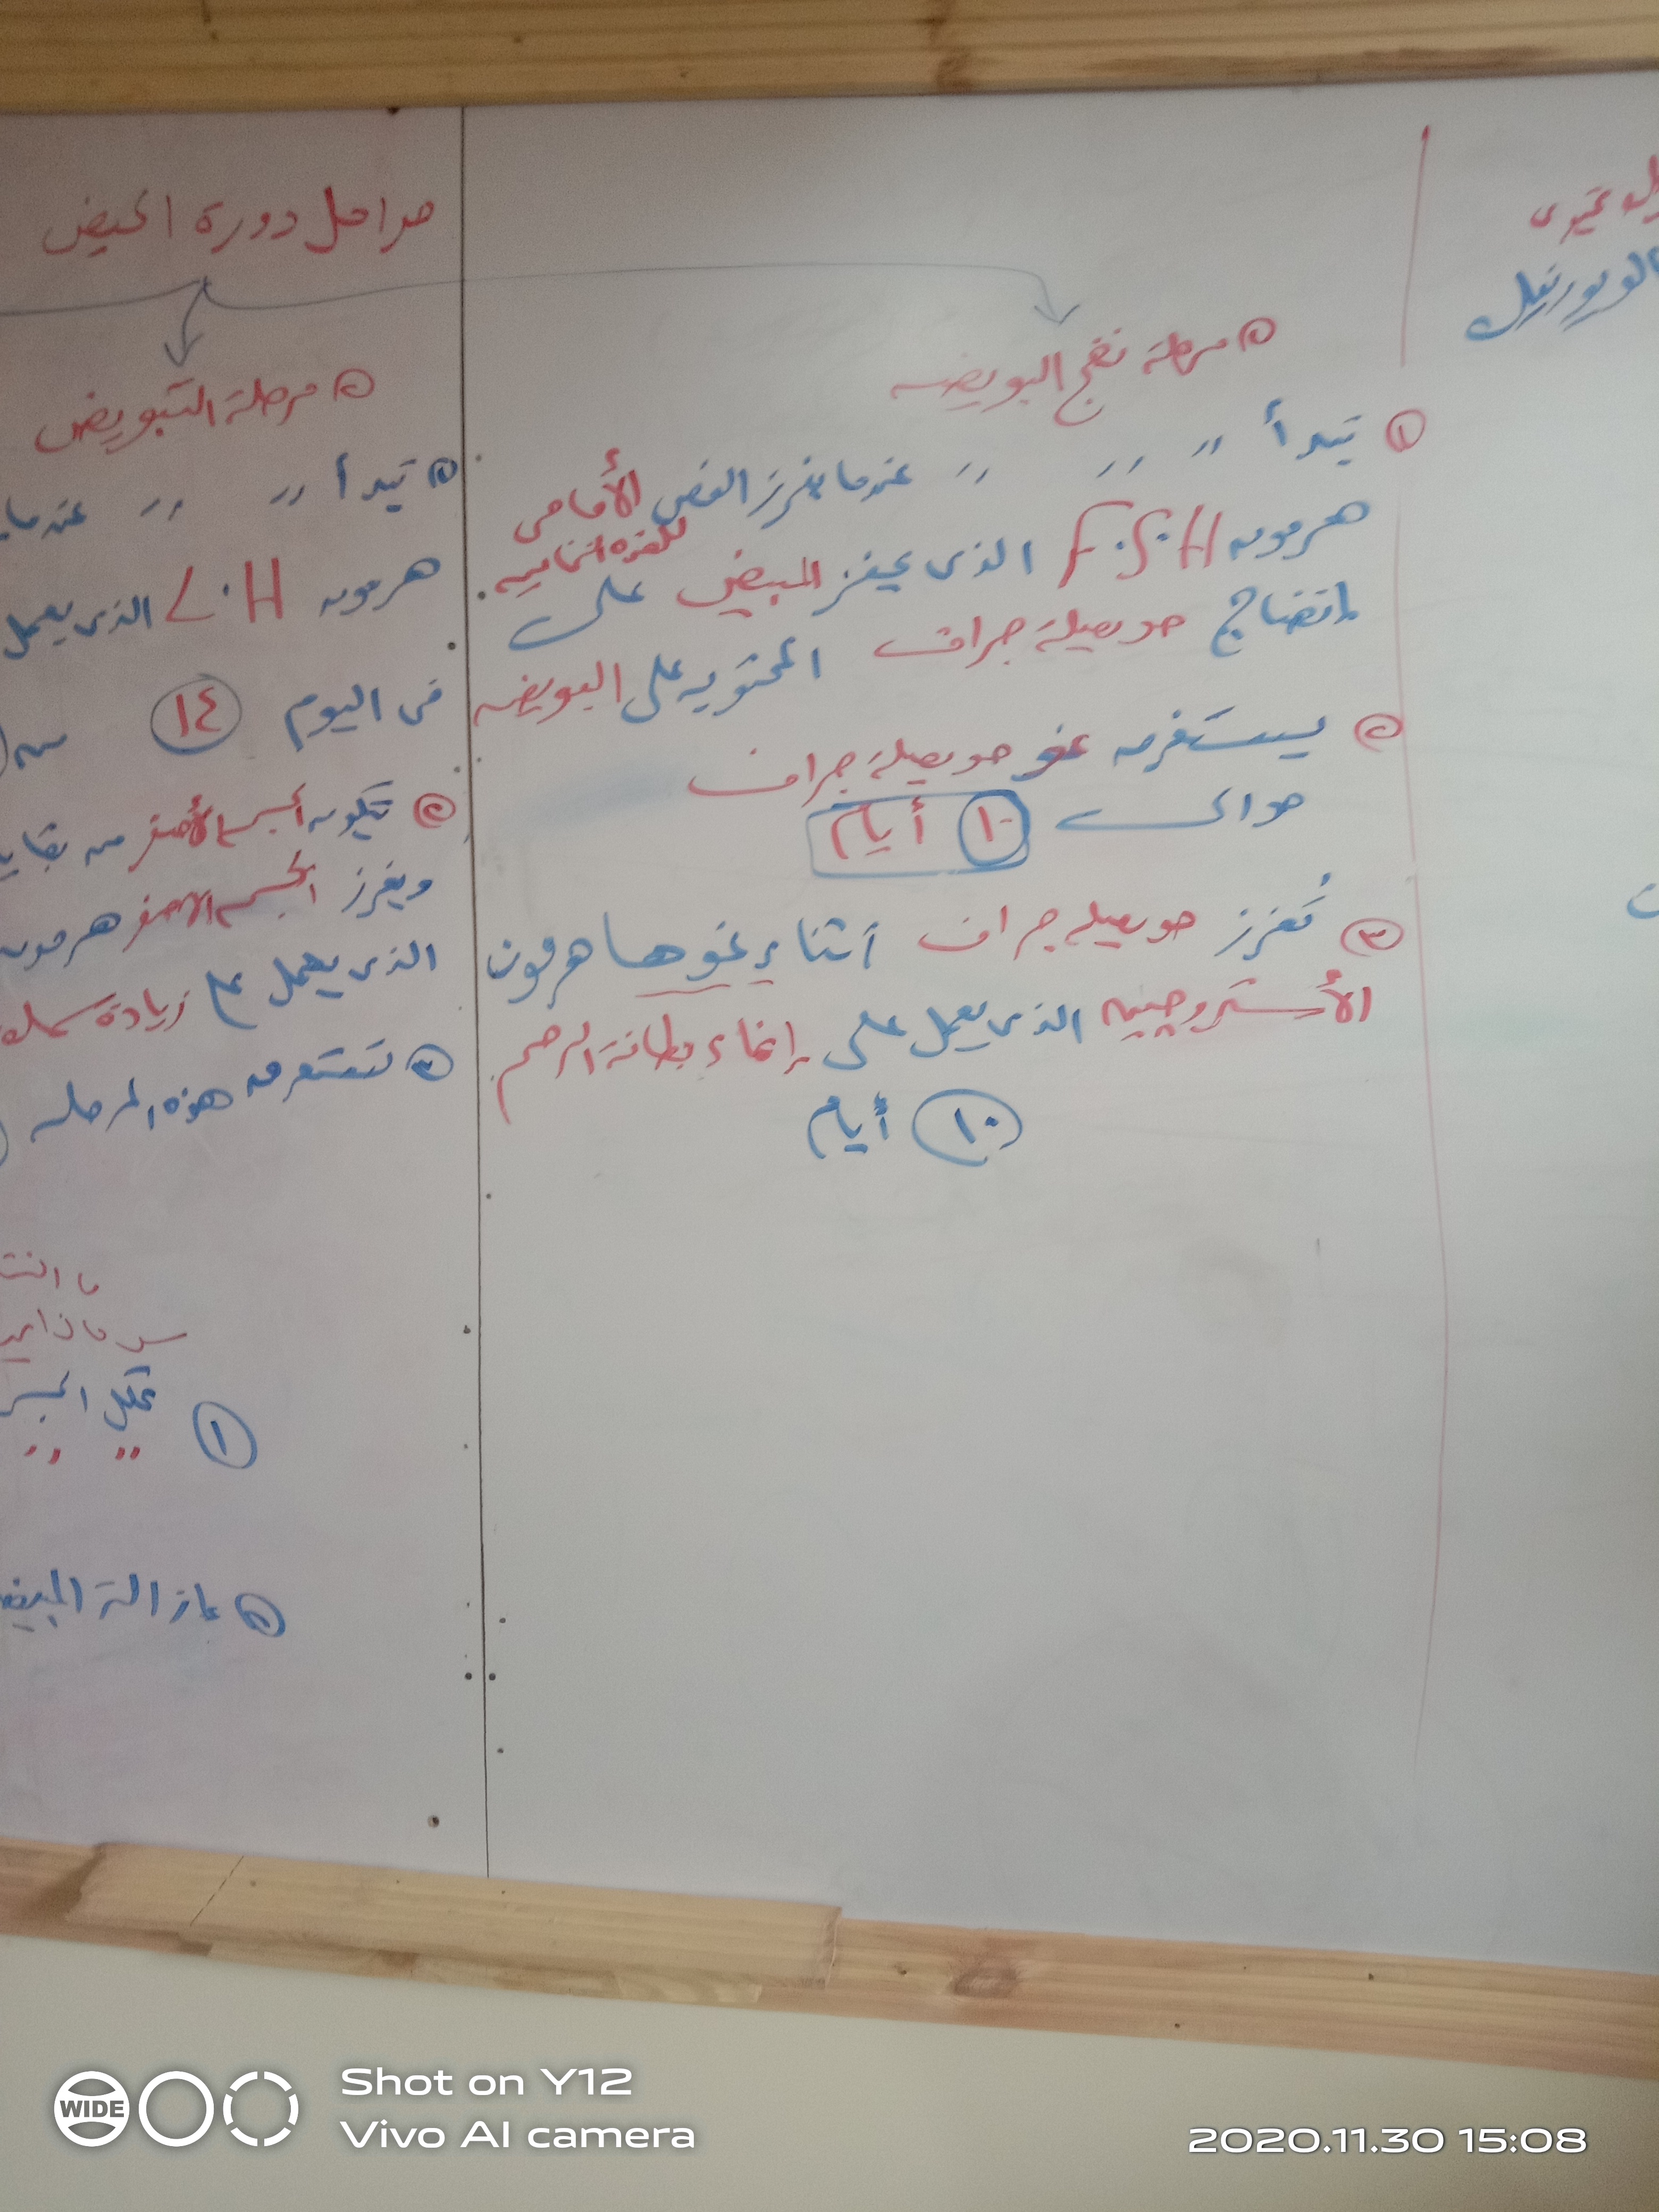 مراحل دورة الحيض
مرحلة نضج البويضه
① تبدأ 〃 〃 〃 عندما يفرز الفص الأمامى
للغده النخاميه
هرمون F.S.H الذى يحفز المبيض على
إنضاج حويصلة جراف المحتويه على البويضه
② يستغرق نمو حويصلة جراف
حوالى ١٠ أيام
③ تُفرز حويصله جراف أثناء نموها هرمون
الأستروچين الذى يعمل على إنماء بطانة الرحم
١٠ أيام
② مرحلة التبويض
① تبدأ 〃 〃 عندما
هرمون L.H الذى يعمل
فى اليوم ١٤ من
② تكون الجسم الأصفر من بقايا
ويفرز الجسم الاصفر هرمون
الذى يعمل على زيادة سمك
③ تستغرق هذه المرحله
①
② إزالة المبيض
Shot on Y12
Vivo AI camera
WIDE
2020.11.30 15:08